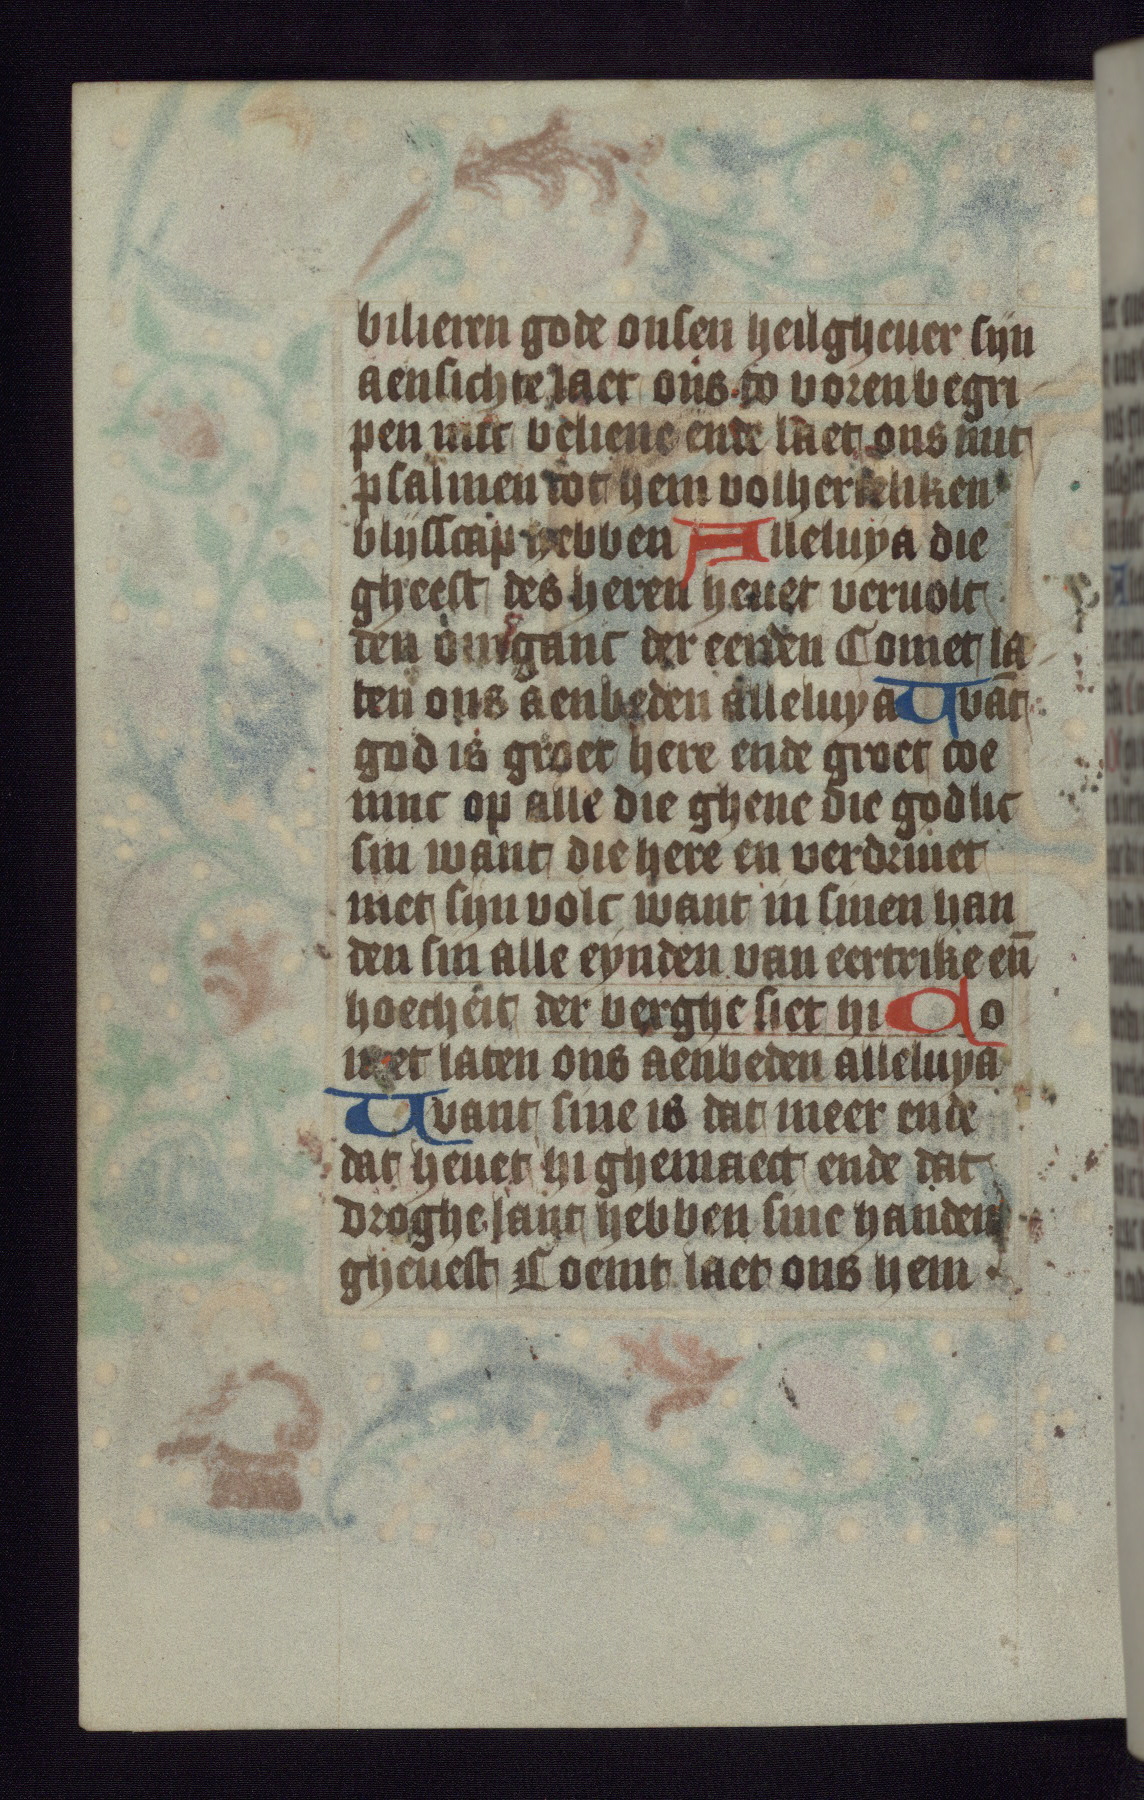 bilieren gode onsen heilgheuer sijn
aensichte laet ons to voren begri
pen mit beliene ende laet ons mit
psalmen tot hem volherteliken
blijsscap hebben Alleluya die
gheest des heren heuet veruolt
den omganc der eerden Comet la
ten ons aenbeden alleluya Want
god is groet here ende groet coe
ninc op alle die ghene die godlic
sin want die here en verdriuet
niet sijn volc want in sinen han
den sin alle eynden van eertrike en̄
hoecheit der berghe siet hi Co
met laten ons aenbeden alleluya
Want sine is dat meer ende
dat heuet hi ghemaect ende dat
droghe lant hebben sine handen
gheuest Coemt laet ons hem